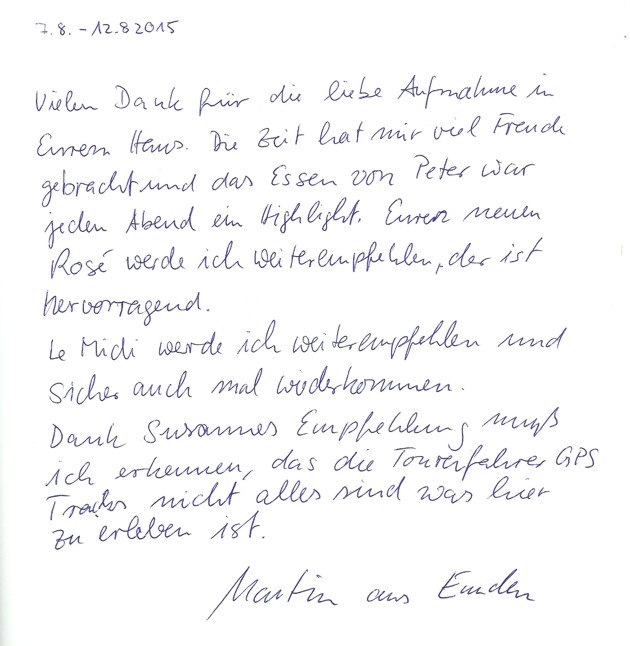 7.8. - 12.8 2015
Vielen Dank für die liebe Aufnahme in
Eurem Haus. Die Zeit hat mir viel Freude
gebracht und das Essen von Peter war
jeden Abend ein Highlight. Euren neuen
Rosé werde ich weiterempfehlen, der ist
hervorragend.
Le Midi werde ich weiterempfehlen und
sicher auch mal wiederkommen.
Dank Susannes Empfehlung muß
ich erkennen, das die Tourenfahrer GPS
Tracks nicht alles sind was hier
zu erleben ist.
Martin aus Emden